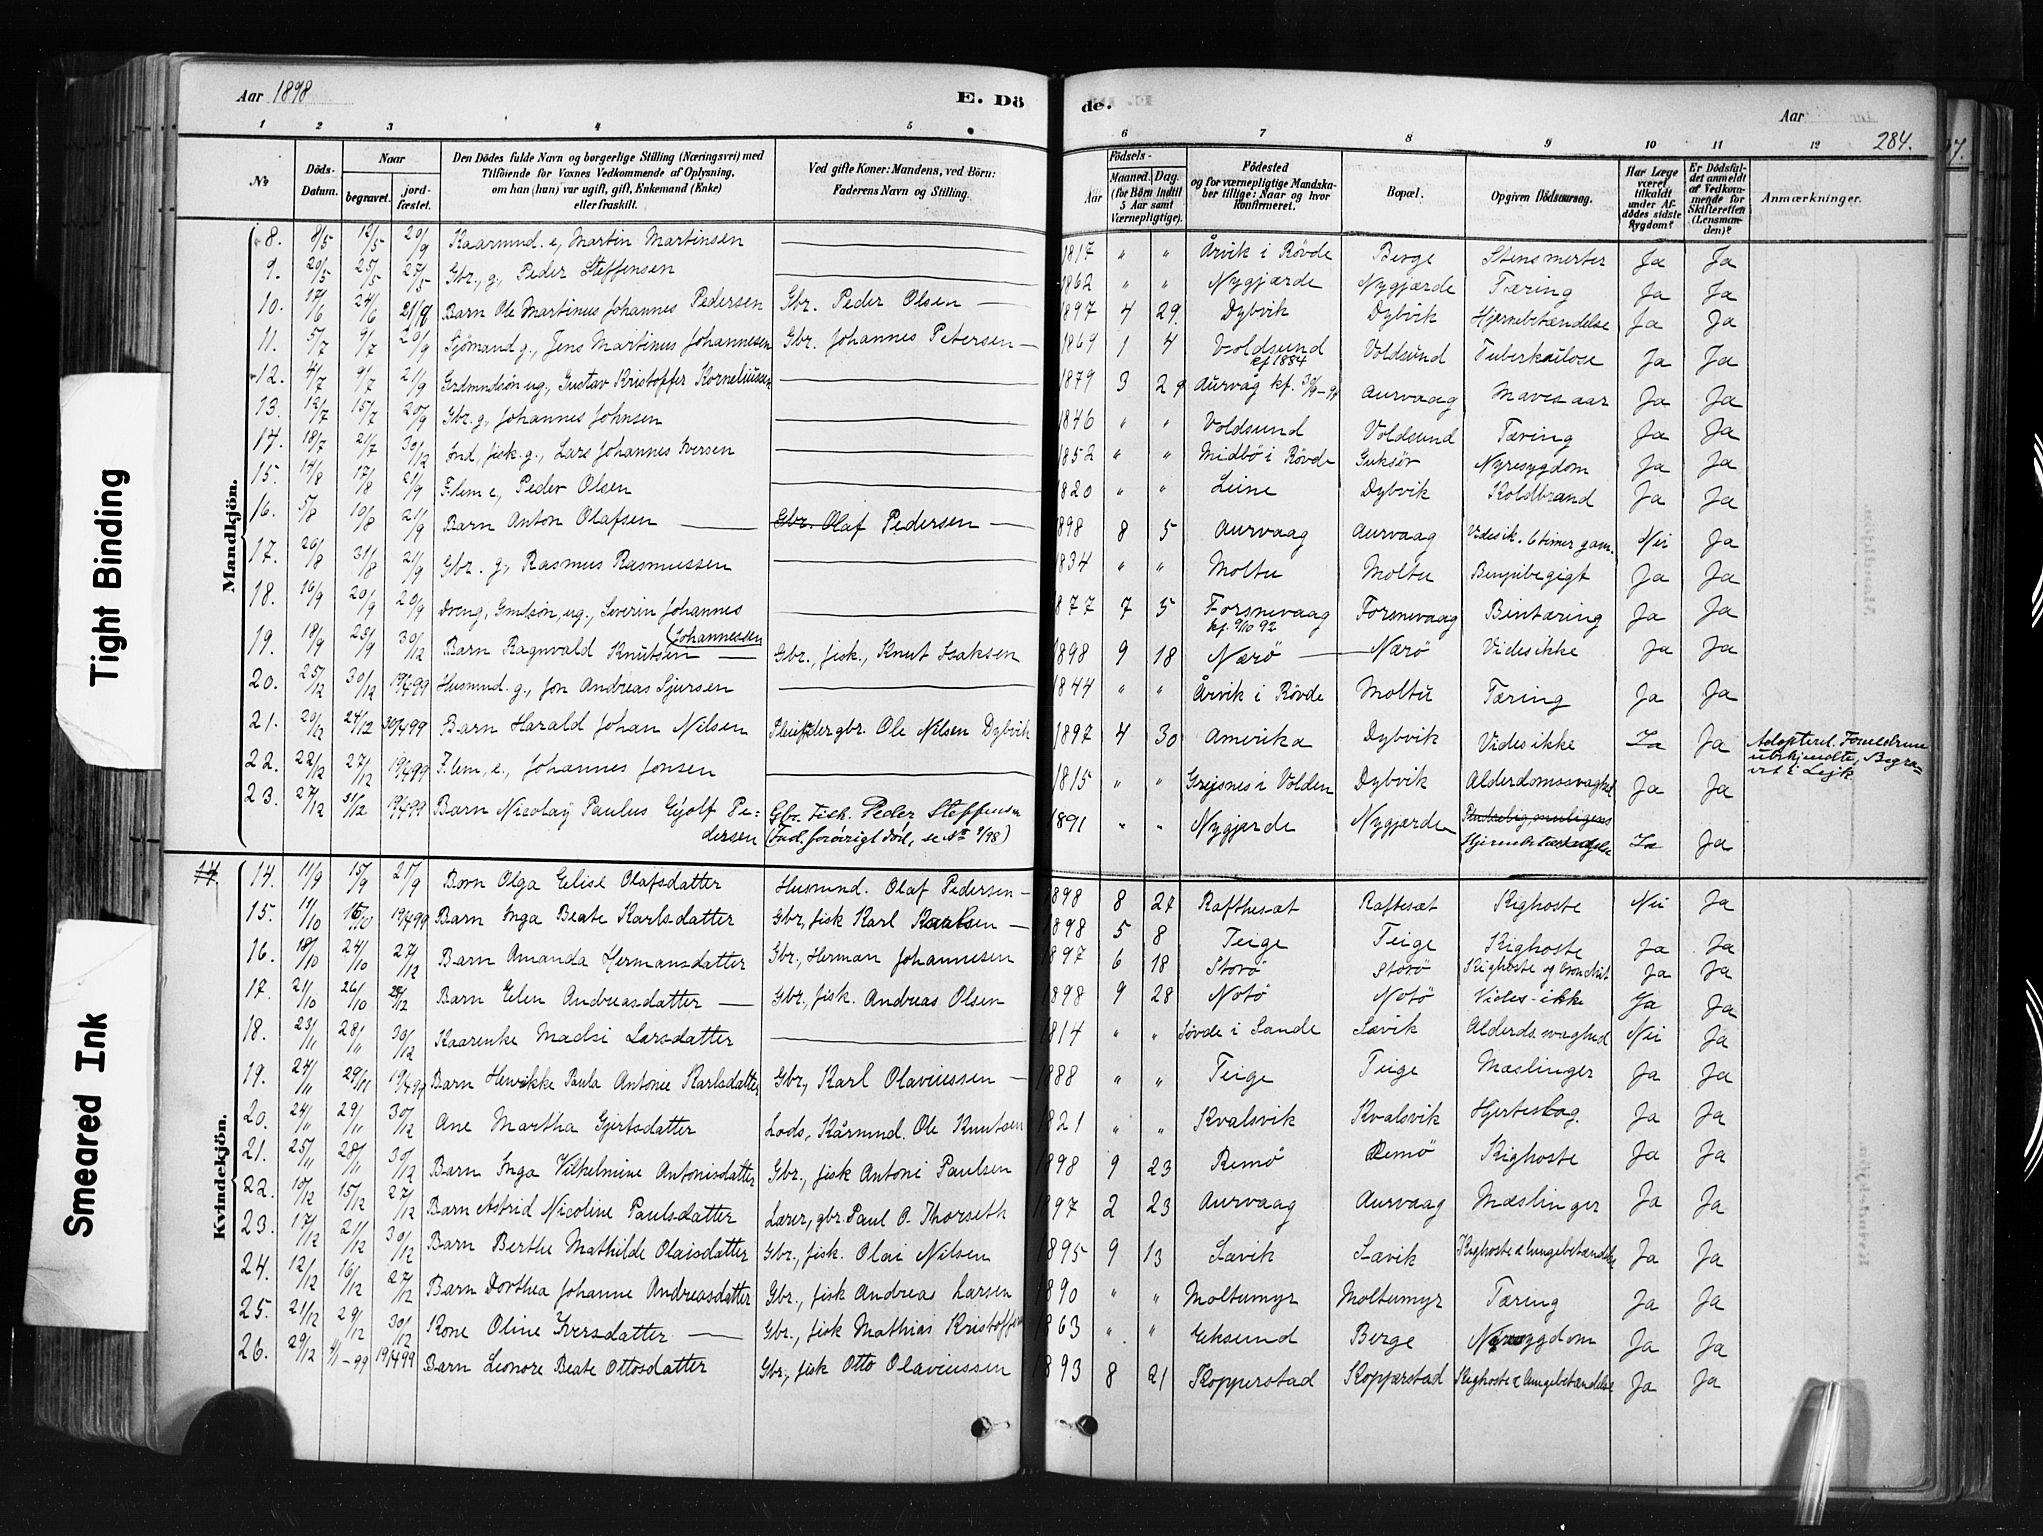 Aar 1898
E. Dö
de.
Aar
284.
1 2 3 4 5 6 7 8 9 10 11 12
№
Döds-Datum.
Naar
begravet.
jord-fæstet.
Den Dödes fulde Navn og borgerlige Stilling (Næringsvei) med Tilföiende for Voxnes Vedkommende af Oplysning, om han (hun) var ugift, gift, Enkemand (Enke) eller fraskilt.
Ved gifte Koner: Mandens, ved Börn: Faderens Navn og Stilling.
Födsels-
Aar
Maaned. Dag.
(for Börn indtil 5 Aar samt Værnepligtige).
Födested og for værnepligtige Mandskaber tillige: Naar og hvor Konfirmeret.
Bopæl.
Opgiven Dödsaarsag.
Har Læge været tilkaldt under Afdödes sidste Sygdom?
Er Dödsfaldet anmeldt af Vedkommende for Skifteretten (Lensmanden)?
Anmærkninger.
Mandkjön.
8. 8/5 12/5 20/9 Kaarmnd. e, Martin Martinsen 1817 " " Årvik i Røvde Berge Stensmerter Ja Ja
9. 20/5 25/5 27/5 Gbr., g, Peder Steffensen 1862 " " Nygjærde Nygjærde Tæring Ja Ja
10. 17/6 24/6 21/9 Barn Ole Martinus Johannes Pedersen Gbr. Peder Olsen 1897 4 29 Dybvik Dybvik Hjernebetændelse Ja Ja
11. 5/7 9/7 20/9 Sjömand g., Jens Martinus Johannesen Gbr. Johannes Petersen 1869 1 4 Voldsund kf 1884 Voldsund Tuberkulose Ja Ja
12. 4/7 9/7 21/9 Grdmndsön ug., Gustav Kristoffer Korneliussen 1879 3 29 Aurvåg kf. Aurvaag Mavesaar Ja Ja
13. 12/7 15/7 20/9 Gbr. g, Johannes Johnsen 1846 " " Voldsund Voldsund Tæring Ja Ja
14. 18/7 21/7 30/12 Ind. fisk. g., Lars Johannes Iversen 1852 " " Midbö i Røvde Guksör Nyresygdom Ja Ja
15. 14/8 17/8 21/9 F.lem e, Peder Olsen 1820 " " Leine Dybvik Koldbrand Ja Ja
16. 5/8 10/8 21/9 Barn Anton Olafsen Gbr. Olaf Pedersen 1898 8 5 Aurvaag Aurvaag Vides ik. 6 timer gam. Nei Ja
17. 26/8 31/8 21/9 Gbr. g, Rasmus Rasmussen 1834 " " Moltu Moltu Ja Ja
18. 16/9 20/9 20/9 Dreng, Gmdsön ug., Severin Johannes Johannessen 1877 7 5 Forsnevaag kf. 9/10 92 Forsnevaag Bentæring Ja Ja
19. 18/9 23/9 30/12 Barn Ragnvald Knutsen Gbr., fisk., Knut Isaksen 1898 9 18 Nærö Nærö Vides ikke Ja Ja
20. 25/12 30/12 19/4 99 Husmnd. g., Jon Andreas Sjursen 1844 " " Årvik i Røvde Moltu Tæring Ja Ja
21. 20/12 24/12 30/4 99 Barn Harald Johan Nilsen Pleiefader gbr. Ole Nilsen Dybvik 1897 4 30 Amerika Dybvik Vides ikke Ja Ja Adopteret. Forældrene ubekjendte, Begravet i Leik.
22. 22/12 27/12 19/4 99 F.lem, e., Johannes Jonsen 1815 " " Grejsnes i Volden Dybvik Alderdomssvaghed Ja Ja
23. 27/12 31/12 19/4 99 Barn Nicolaÿ Paulus Ejolf Pedersen Gbr. Fisk. Peder Steffensen (Ind. forövrigt död, se № 9/98) 1891 " " Nygjærde Nygjærde Hjernebetændelse Ja Ja
Kvindekjön.
14. 11/9 15/9 21/9 Barn Olga Elise Olafsdatter Husmnd. Olaf Pedersen 1898 8 27 Rafthesæt Raftesæt Kighoste Nei Ja
15. 11/10 16/10 19/4 99 Barn Inga Beate Karlsdatter Gbr, fisk Karl Karlsen 1898 5 8 Teige Teige Kighoste Ja Ja
16. 18/10 24/10 27/12 Barn Amanda Hermansdatter Gbr., Herman Johannesen 1897 6 18 Storö Storö Kighoste og bronchit Ja Ja
17. 21/10 26/10 28/12 Barn Elen Andreasdatter Gbr., fisk. Andreas Olsen 1898 9 28 Notö Notö Vides-ikke Ja Ja
18. 23/11 28/11 30/12 Kaarenke Madsi Larsdatter 1814 " " Søvde i Sande Sævik Alderds. svaghed Nei Ja
19. 24/11 29/11 19/4 99 Barn Henrikke Paula Antonie Karlsdatter Gbr., Karl Olaviussen 1888 " " Teige Teige Mæslinger Ja Ja
20. 24/11 29/11 30/12 Ane Martha Gjertsdatter Lods, Kårmnd. Ole Knutsen 1821 " " Kvalsvik Kvalsvik Hjerteslag. Ja Ja
21. 25/11 28/11 30/12 Barn Inga Vilhelmine Antonisdatter Gbr., fisk Antoni Paulsen 1898 9 23 Remö Remö Kighoste Ja Ja
22. 10/12 15/12 27/12 Barn Astrid Nicoline Paulsdatter Lærer, gbr. Paul O. Thorseth 1897 2 23 Aurvaag Aurvaag Mæslinger Ja Ja
23. 17/12 21/12 30/12 Barn Berthe Mathilde Olaisdatter Gbr., fisk. Olai Nilsen 1895 9 13 Sævik Sævik Kighoste & lungebetændelse Ja Ja
24. 12/12 16/12 27/12 Barn Dorthea Johanne Andreasdatter Gbr., fisk Andreas Larsen 1890 " " Moltumyr Moltumyr Tæring Ja Ja
25. 21/12 29/12 30/12 Kone Oline Iversdatter Gbr., fisk Mathias Kristoffersen 1863 " " Eksund Berge Nyresygdom Ja Ja
26. 29/12 4/1-99 19/4 99 Barn Leonore Beate Ottosdatter Gbr., fisk Otto Olaviussen 1893 8 21 Kopperstad Kopperstad Kighoste & lungebetændelse Ja Ja
Tight Binding
Smeared Ink